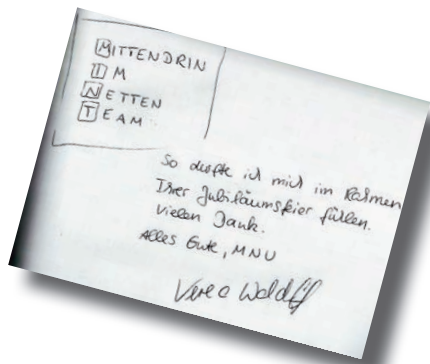 MITTENDRIN
IM
NETTEN
TEAM
So durfte ich mich im Rahmen
Ihrer Jubiläumsfeier fühlen.
Vielen Dank.
Alles Gute, MNU
Vera